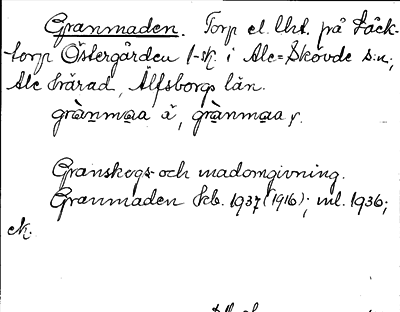 Granmaden. Torp el. lht. på Bäck-
torp Östergården 1-sk. i Ale-Skövde s:n,
Ale härad, Älfsborgs län.
grànmaa ä, grànmaa
Granskogs- och madomgivning.
Granmaden kb. 1937 (1916); ml. 1936;
ek.